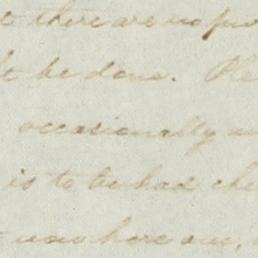 there are no
be done.
occasionally
is to be had
was here one,